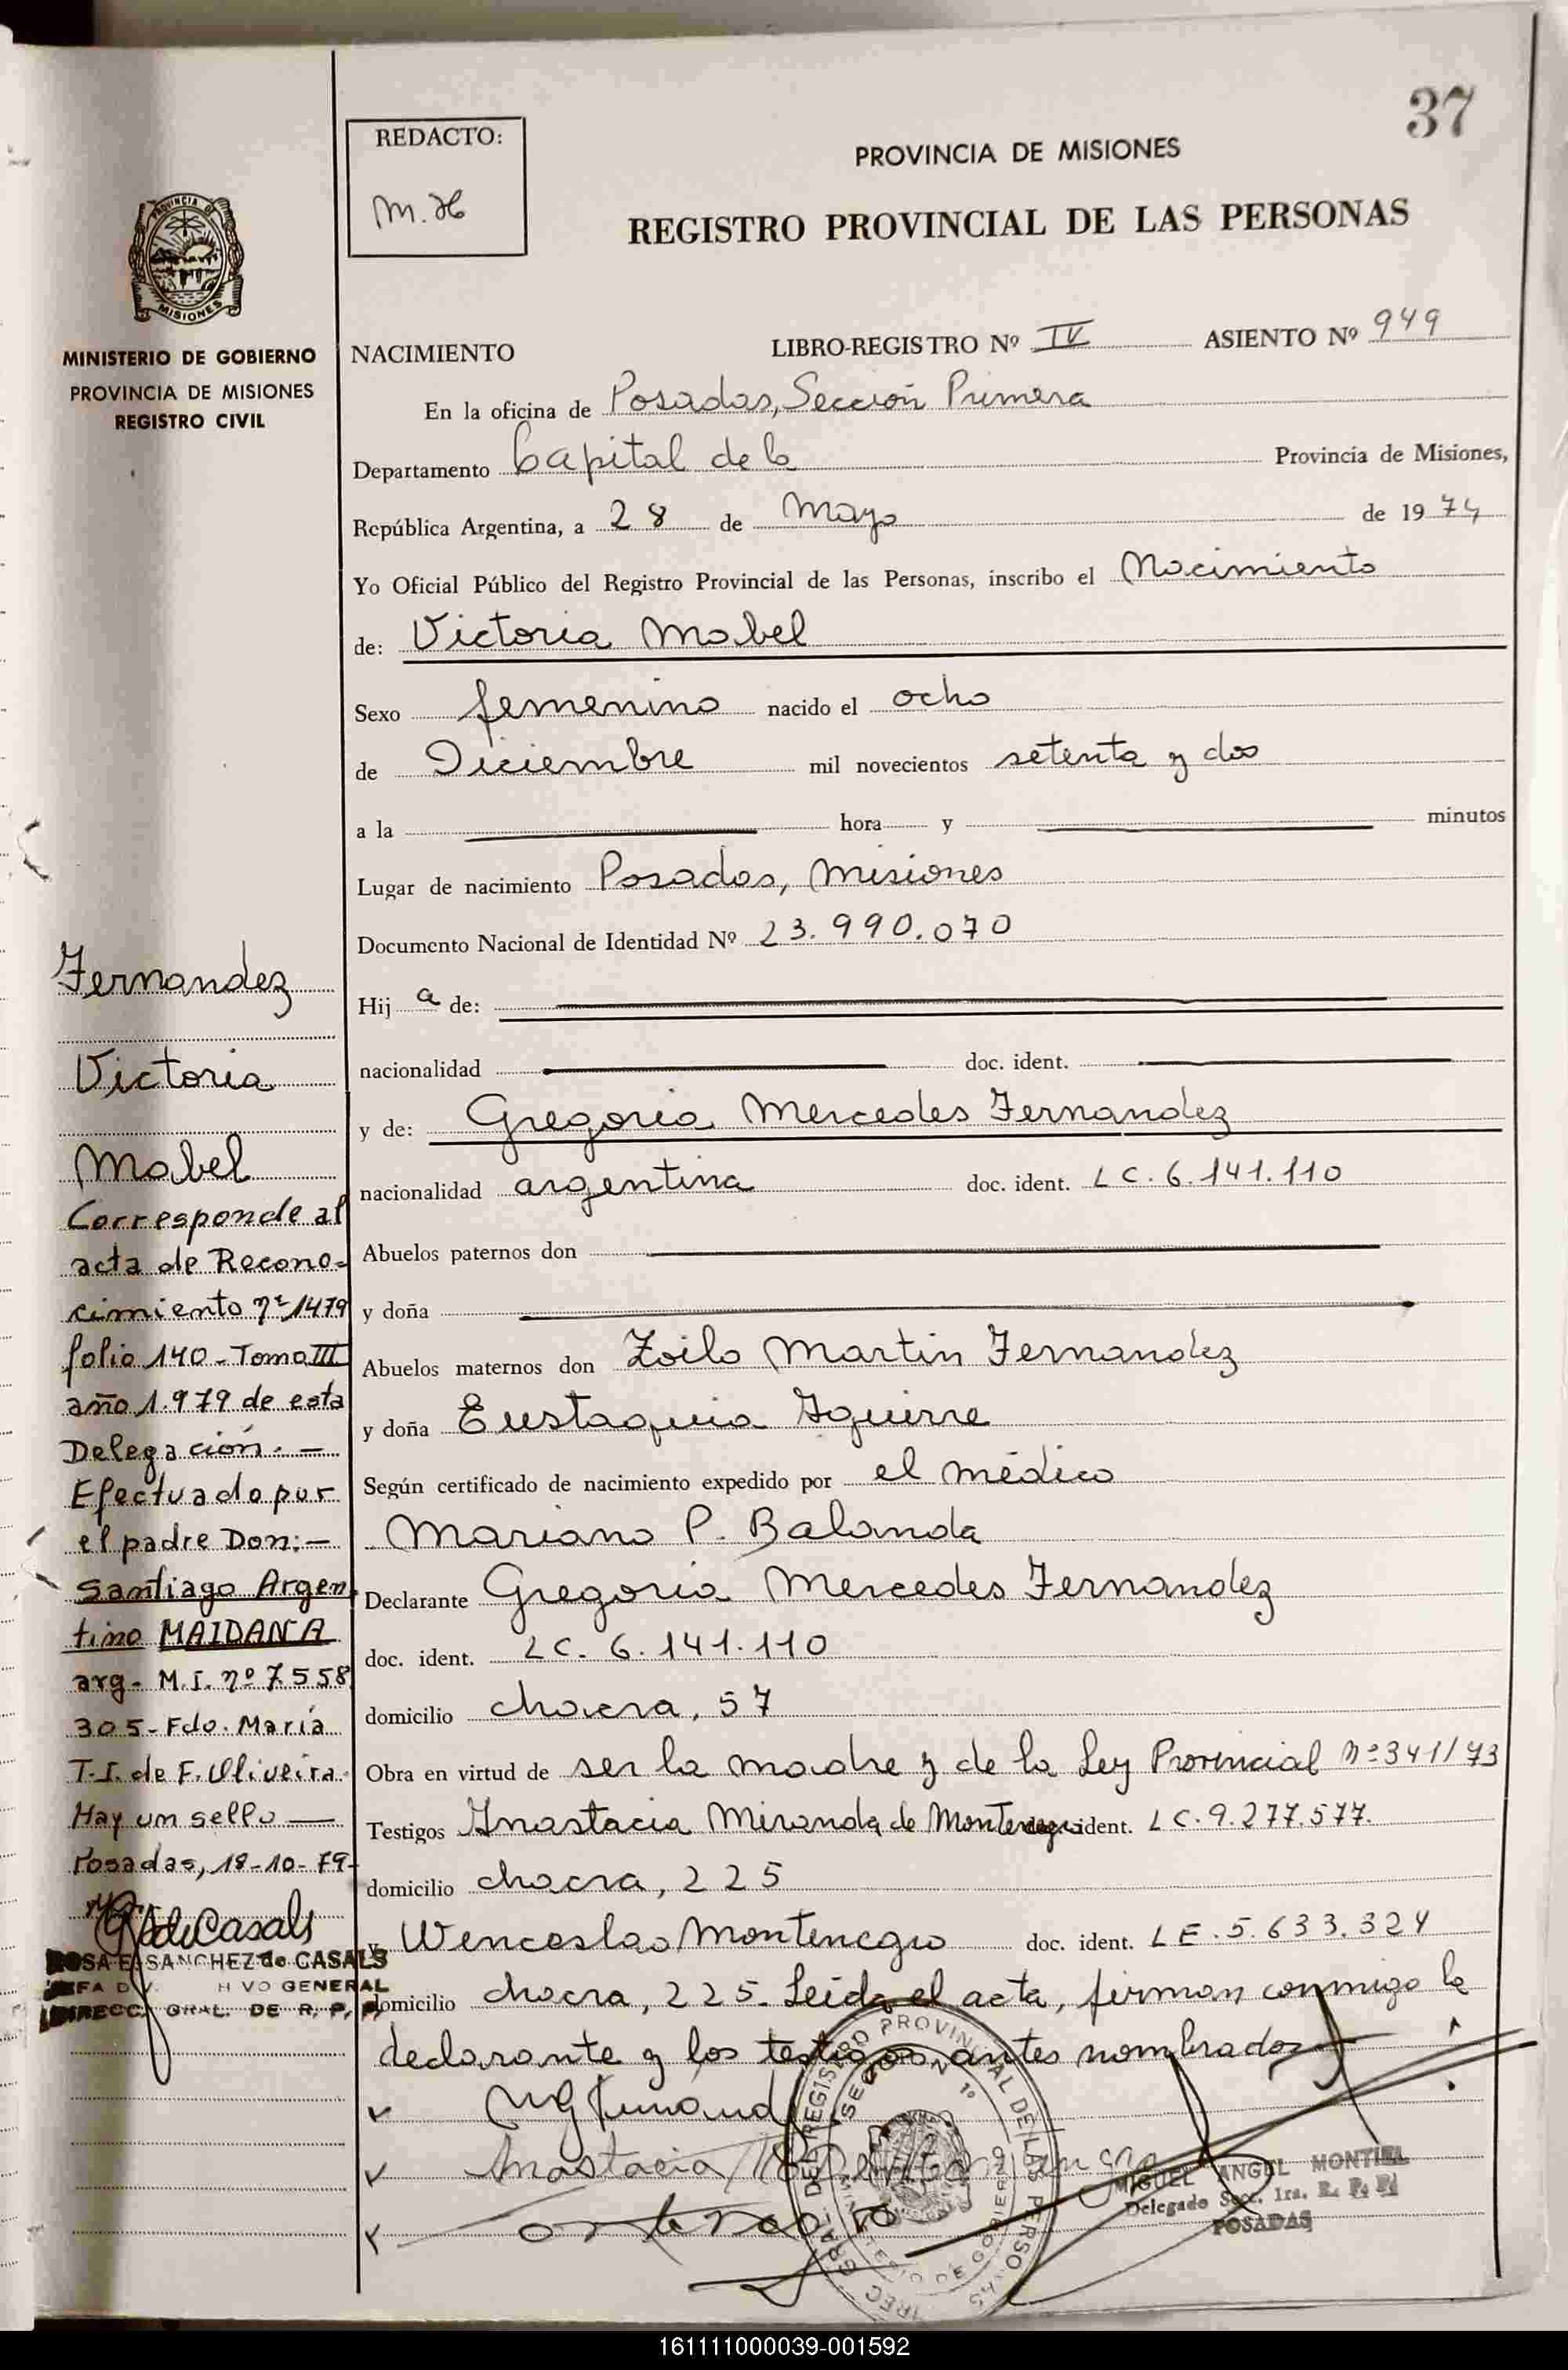 37
REDACTO:
M. H
PROVINCIA DE MISIONES
REGISTRO PROVINCIAL DE LAS PERSONAS
PROVINCIA DE
MISIONES
MINISTERIO DE GOBIERNO
PROVINCIA DE MISIONES
REGISTRO CIVIL
NACIMIENTO LIBRO-REGISTRO Nº IV ASIENTO Nº 949
En la oficina de Posadas, Sección Primera
Departamento Capital de la Provincia de Misiones,
República Argentina, a 28 de Mayo de 1974
Yo Oficial Público del Registro Provincial de las Personas, inscribo el Nacimiento
de: Victoria Mabel
Sexo femenino nacido el ocho
de Diciembre mil novecientos setenta y dos
a la hora y minutos
Lugar de nacimiento Posadas, Misiones
Documento Nacional de Identidad Nº 23.990.070
Hij a de:
nacionalidad doc. ident.
y de: Gregoria Mercedes Fernandez
nacionalidad argentina doc. ident. LC. 6.141.110
Abuelos paternos don
y doña
Abuelos maternos don Zoilo Martin Fernandez
y doña Eustaquia Aguirre
Según certificado de nacimiento expedido por el médico
Mariano P. Balanda
Declarante Gregoria Mercedes Fernandez
doc. ident. LC. 6.141.110
domicilio chacra, 57
Obra en virtud de ser la madre y de la Ley Provincial nº 341/73
Testigos Anastacia Miranda de Montenegro ident. LC. 9.277.577.
domicilio chacra, 225
y Wenceslao Montenegro doc. ident. LE. 5.633.324
domicilio chacra, 225. Leída el acta, firman conmigo la
declarante y los testigos antes nombrados
Anastacia
MIGUEL ANGEL MONTIEL
Delegado Secc. 1ra. R. P. P.
POSADAS
REGISTRO PROVINCIAL DE LAS PERSONAS
SECCION 1º
MINISTERIO DE GOBIERNO
Fernandez
Victoria
Mabel
Corresponde al
acta de Recono-
cimiento nº 1479
folio 140 - Tomo III
año 1.979 de esta
Delegación. —
Efectuado por
el padre Don: —
Santiago Argen
tino MAIDANA
arg - M.I. nº 7.558
305 - Fdo. María
T. I. de F. Oliveira.
Hay un sello —
Posadas, 18-10-79-
ROSA E. SANCHEZ de CASALS
DIRECC. GRAL. DE R. P. P.
161111000039-001592